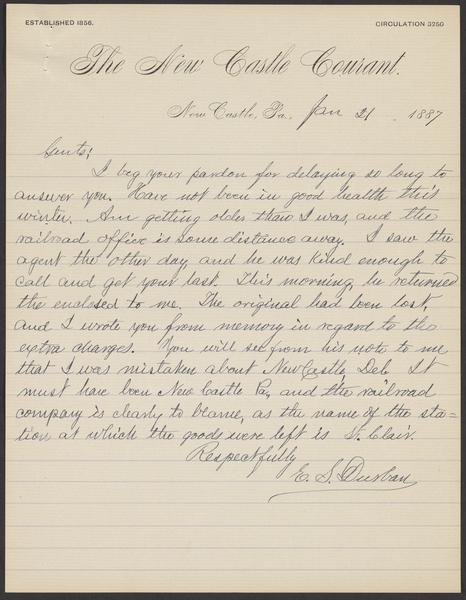 ESTABLISHED 1856.
CIRCULATION 3250
The New Castle Courant.
New Castle, Pa., Jan 21 1887
Gents;
I beg your pardon for delaying so long to
answer you. Have not been in good health this
winter. Am getting older than I was, and the
railroad office is some distance away. I saw the
agent the other day and he was kind enough to
call and get your last. This morning, he returned
the enclosed to me. The original had been lost,
and I wrote you from memory in regard to the
extra charges. You will see from his note to me
that I was mistaken about New Castle, Del. It
must have been New Castle Pa, and the railroad
company is clearly to blame, as the name of the sta-
tion at which the goods were left is St. Clair.
Respectfully
E. S. Durban